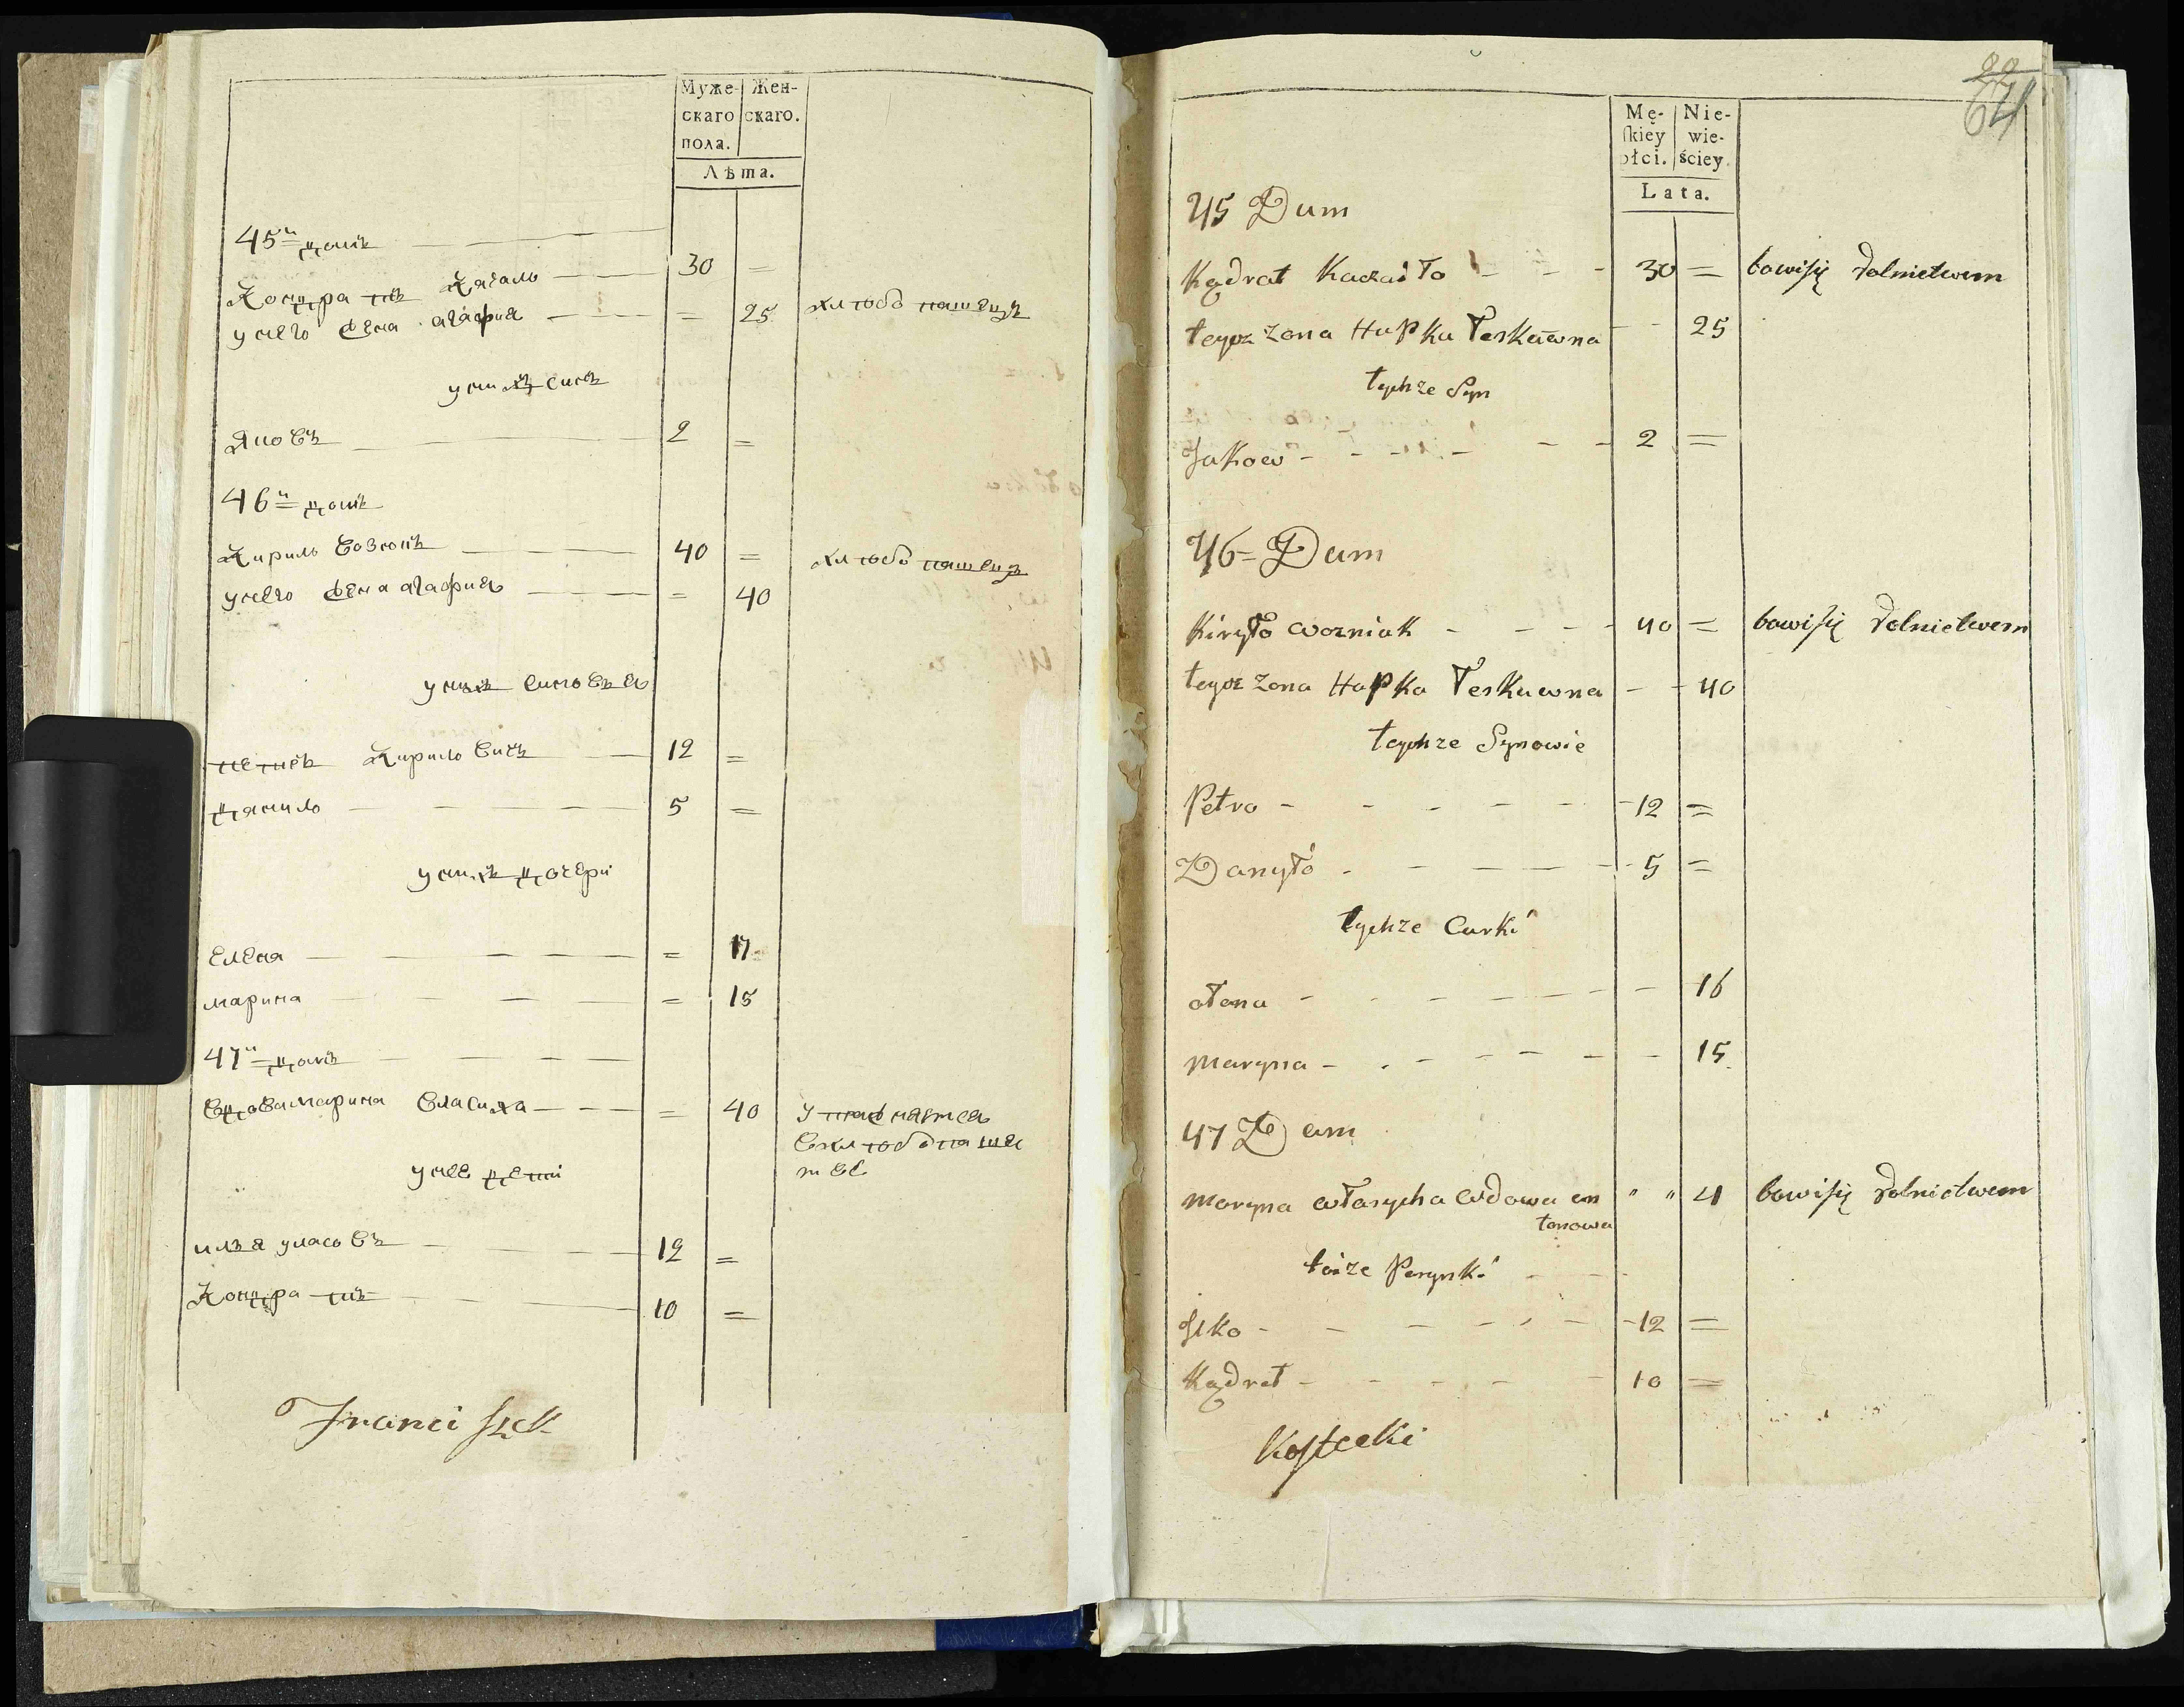 Муже-
скаго
пола.
Жен-
скаго.
Лѣта.
45й домъ
Кондратъ Качало 30 =
у него жена агафия = 25 хлѣбопашецъ
у нихъ синъ
Яковъ 2 =
46й домъ
Кирило Возн 40 = хлѣбопашецъ
у него жена агафия = 40
у нихъ синовья
Кириловичъ 12 =
данило 5 =
у нихъ дочери
Елена = 17
марина = 15
47й домъ
вдова марина Власиха = 40
у нее дети
илья уласовъ 12 =
Кондратъ 10 =
Franciszek
22
64
Mę-
skiey
płci.
Nie-
wie-
ściey.
Lata.
45 Dum
Kądrat Kaczaiło 30 = bawi się rolnictwem
tegoz zona Hapka Leskuwna 25
tychze Syn
Jakow 2 =
46 = Dum
Kiryło wozniak 40 = bawi się rolnictwem
tegoz zona Hapka Leskuwna 40
tychze Synowie
Petro 12 =
Danyło 5 =
tychze Curki
ołena 16
maryna 15
47 Dum
maryna własycha wdowa an " " 4 bawi się rolnictwem
tonowa
toize
Ilko 12 =
Kądrat 10 =
Kostecki